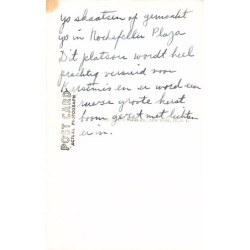 ys skaatsen op gemaakt
ys in Rockefeller Plaza
Dit plaatsen wordt heel
prachtig versierd voor
Kerstmis en er word een
reuse groote kerst
boom gezet met lichten
er in.
POST CARD